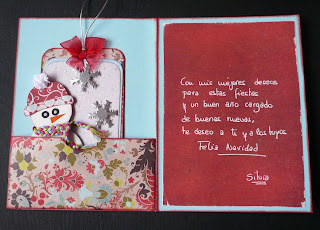 Con mis mejores deseos
para estas fiestas
y un buen año cargado
de buenas nuevas,
te deseo a ti y a los tuyos
Feliz Navidad
Silvia